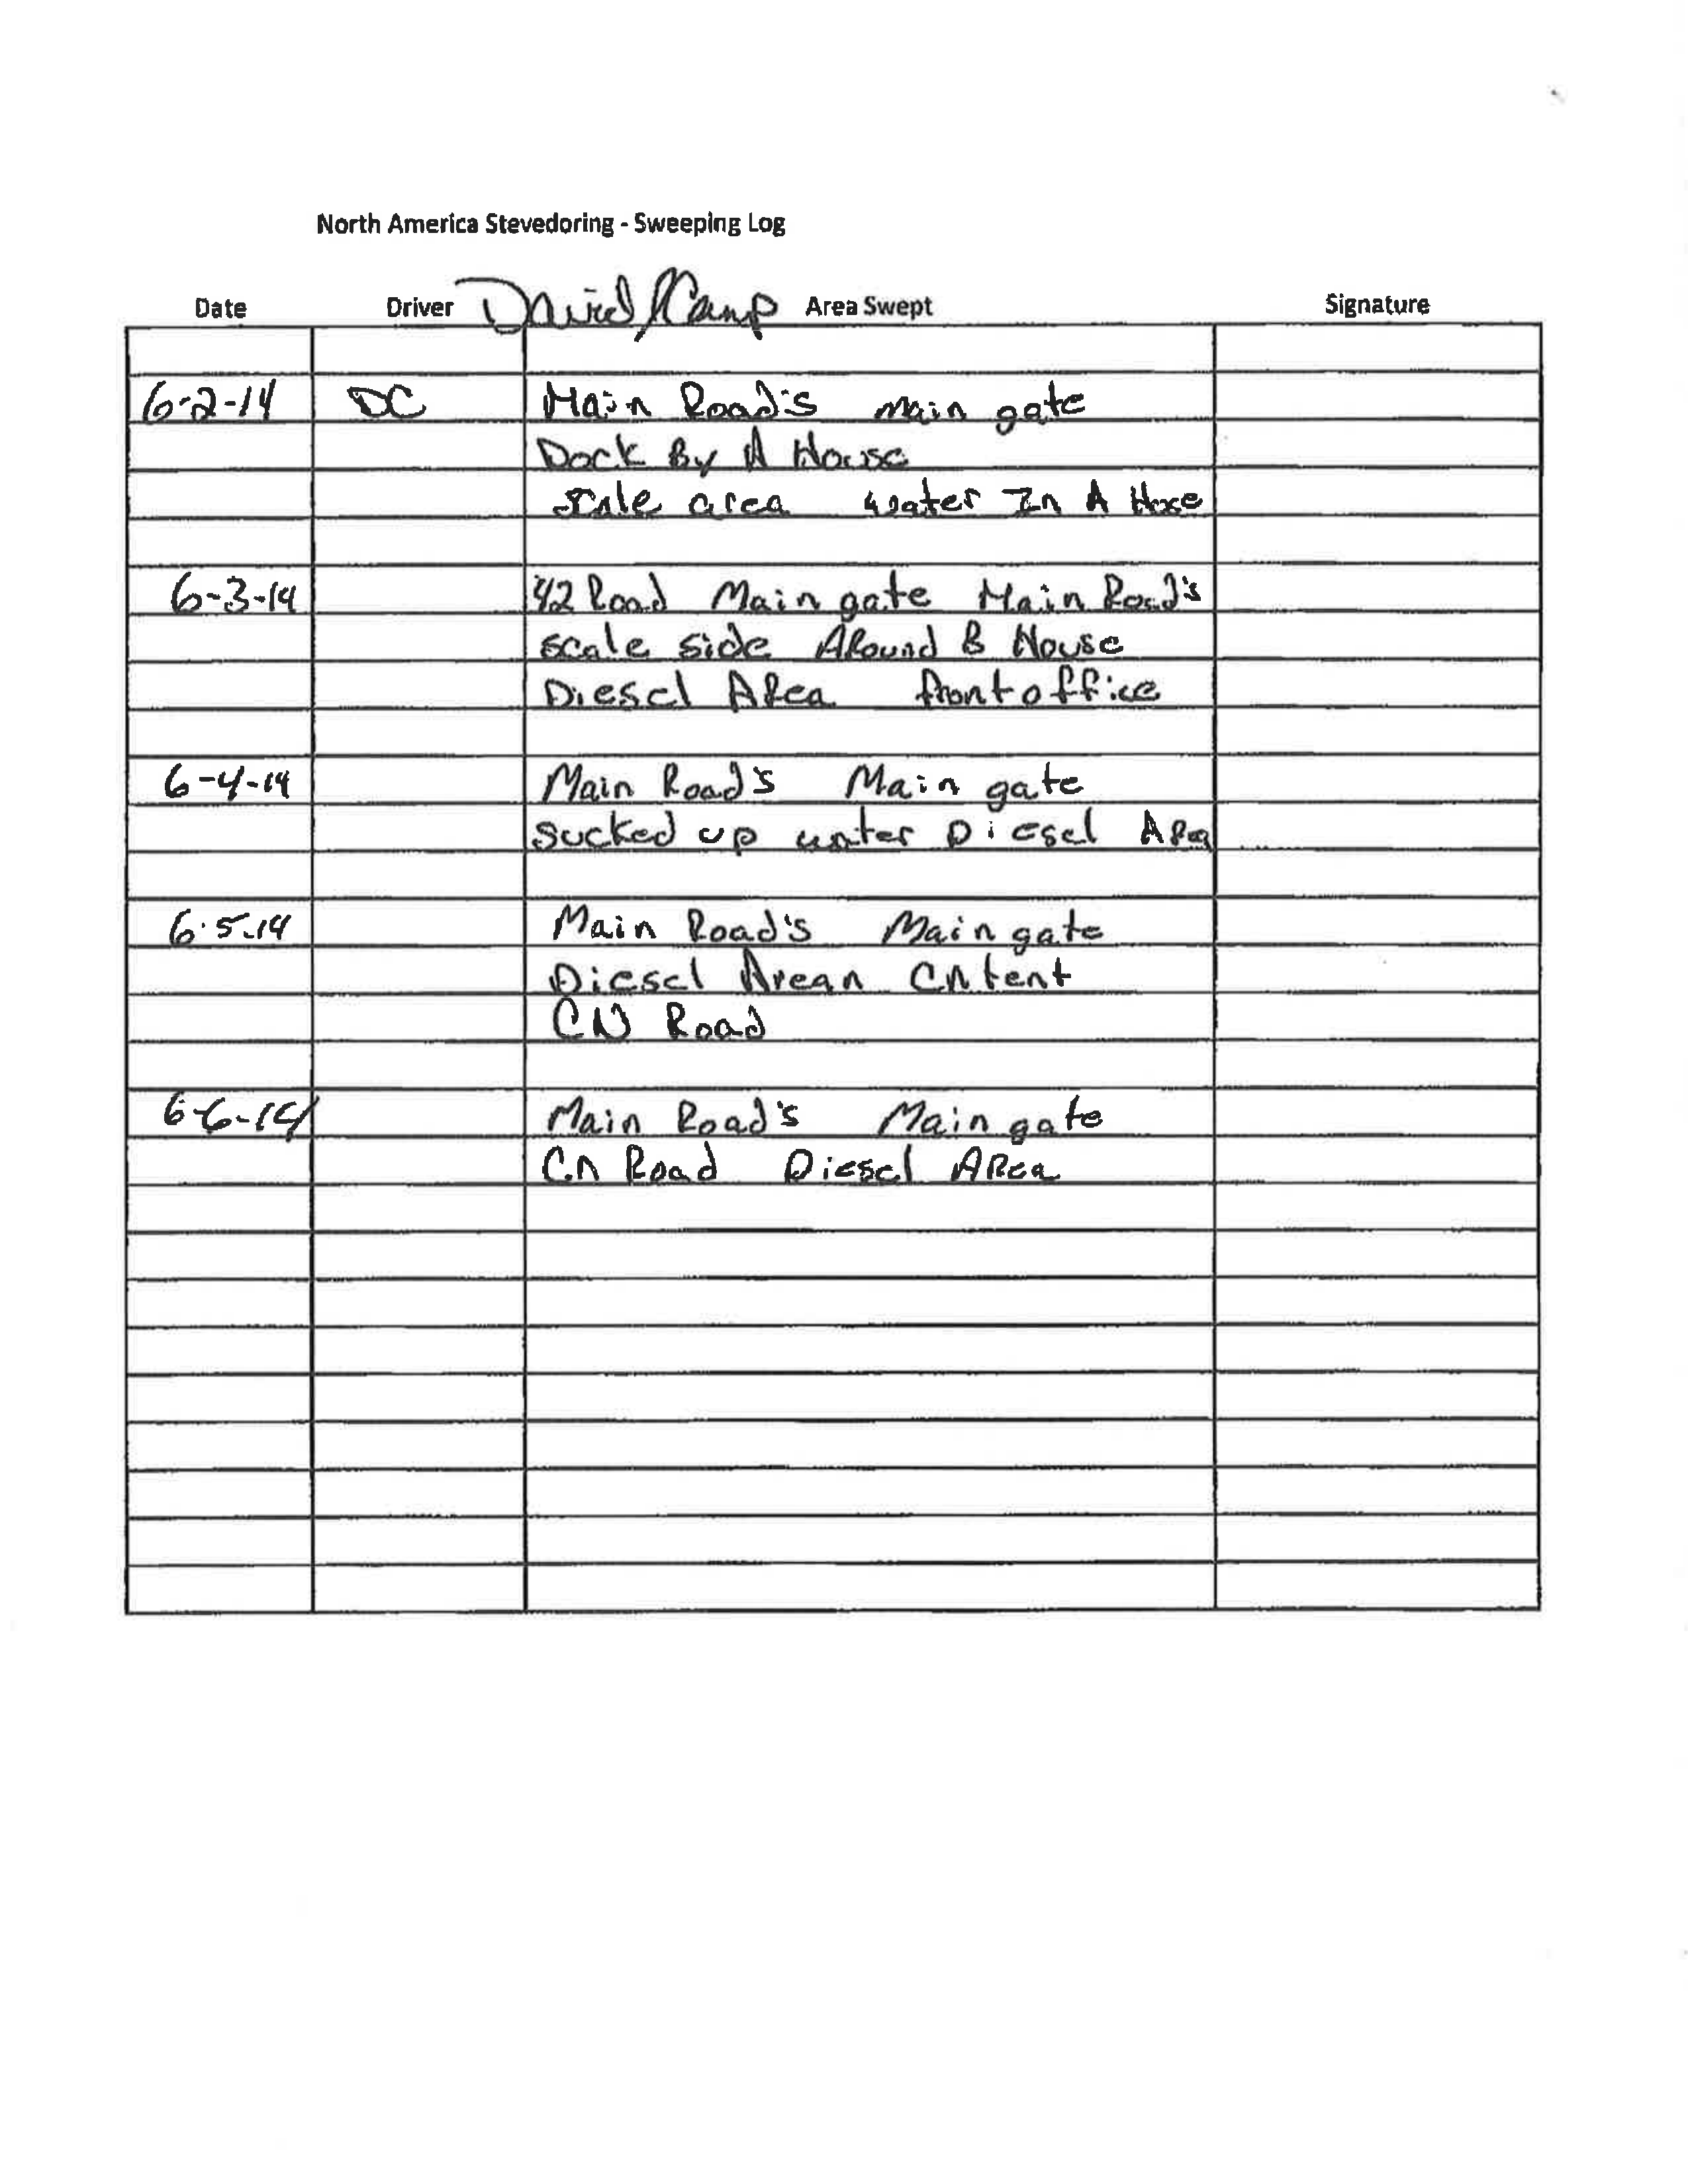 North America Stevedoring - Sweeping Log
Date Driver David Camp Area Swept Signature
6-2-14 DC Main Road's main gate
Dock By A House
Scale area water In A House
6-3-14 Road Main gate Main Road's
scale side ARound B House
Diesel ARea front office
6-4-14 Main Road's Main gate
Sucked up water Diesel ARea
6-5-14 Main Road's Main gate
Diesel Arean
CN Road
6-6-14 Main Road's Main gate
Cn Road Diesel ARea